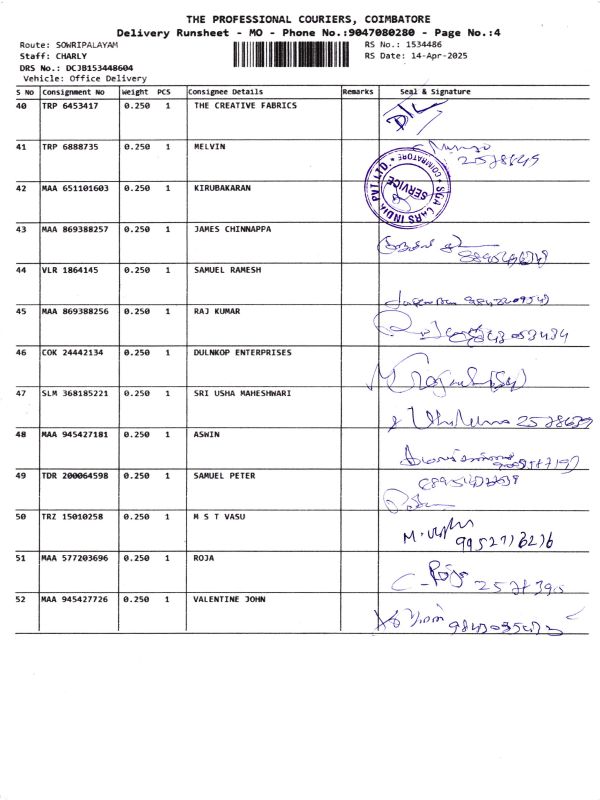 THE PROFESSIONAL COURIERS, COIMBATORE
Delivery Runsheet - MO - Phone No.:9047080280 - Page No.:4
Route: SOWRIPALAYAM RS No.: 1534486
Staff: CHARLY RS Date: 14-Apr-2025
DRS No.: DCJB153448604
Vehicle: Office Delivery
S No Consignment No Weight PCS Consignee Details Remarks Seal & Signature
40 TRP 6453417 0.250 1 THE CREATIVE FABRICS D/L
41 TRP 6888735 0.250 1 MELVIN
SGA CARS INDIA PVT LTD. * COIMBATORE * SERVICE
42 MAA 651101603 0.250 1 KIRUBAKARAN
43 MAA 869388257 0.250 1 JAMES CHINNAPPA
44 VLR 1864145 0.250 1 SAMUEL RAMESH
45 MAA 869388256 0.250 1 RAJ KUMAR
46 COK 24442134 0.250 1 DULNKOP ENTERPRISES
47 SLM 368185221 0.250 1 SRI USHA MAHESHWARI
48 MAA 945427181 0.250 1 ASWIN
49 TDR 200064598 0.250 1 SAMUEL PETER
50 TRZ 15010258 0.250 1 M S T VASU
51 MAA 577203696 0.250 1 ROJA Roja
52 MAA 945427726 0.250 1 VALENTINE JOHN